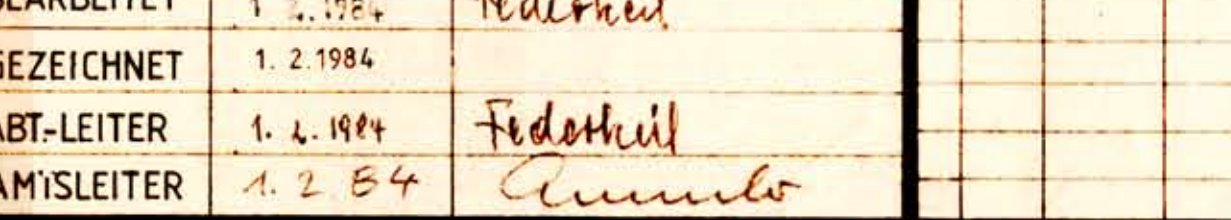 BEARBEITET 1.2.1984 Federkeil
GEZEICHNET 1.2.1984
ABT.-LEITER 1.2.1984 Federkeil
AMTSLEITER 1.2.84